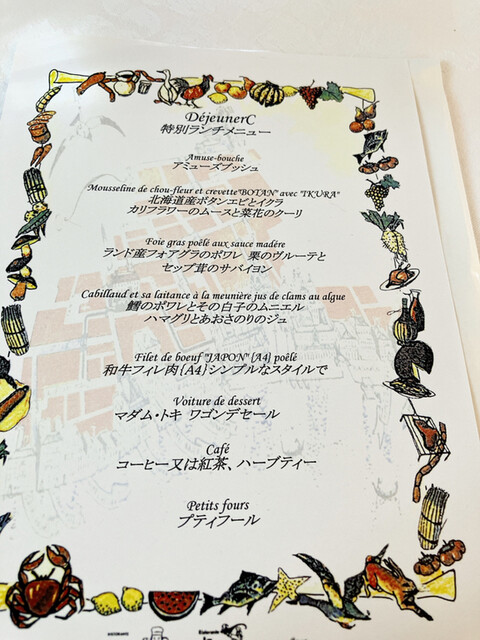 DéjeunerC
特別ランチメニュー
Amuse-bouche
アミューズブッシュ
Mousseline de chou-fleur et crevette"BOTAN" avec "IKURA"
北海道産ボタンエビとイクラ
カリフラワーのムースと菜花のクーリ
Foie gras poêlé aux sauce madère
ランド産フォアグラのポワレ 栗のヴルーテと
セップ茸のサバイヨン
Cabillaud et sa laitance à la meunière jus de clams au algue
鱈のポワレとその白子のムニエル
ハマグリとあおさのりのジュ
Filet de boeuf "JAPON" {A4} poêlé
和牛フィレ肉{A4}シンプルなスタイルで
Voiture de dessert
マダム・トキ ワゴンデセール
Café
コーヒー又は紅茶、ハーブティー
Petits fours
プティフール